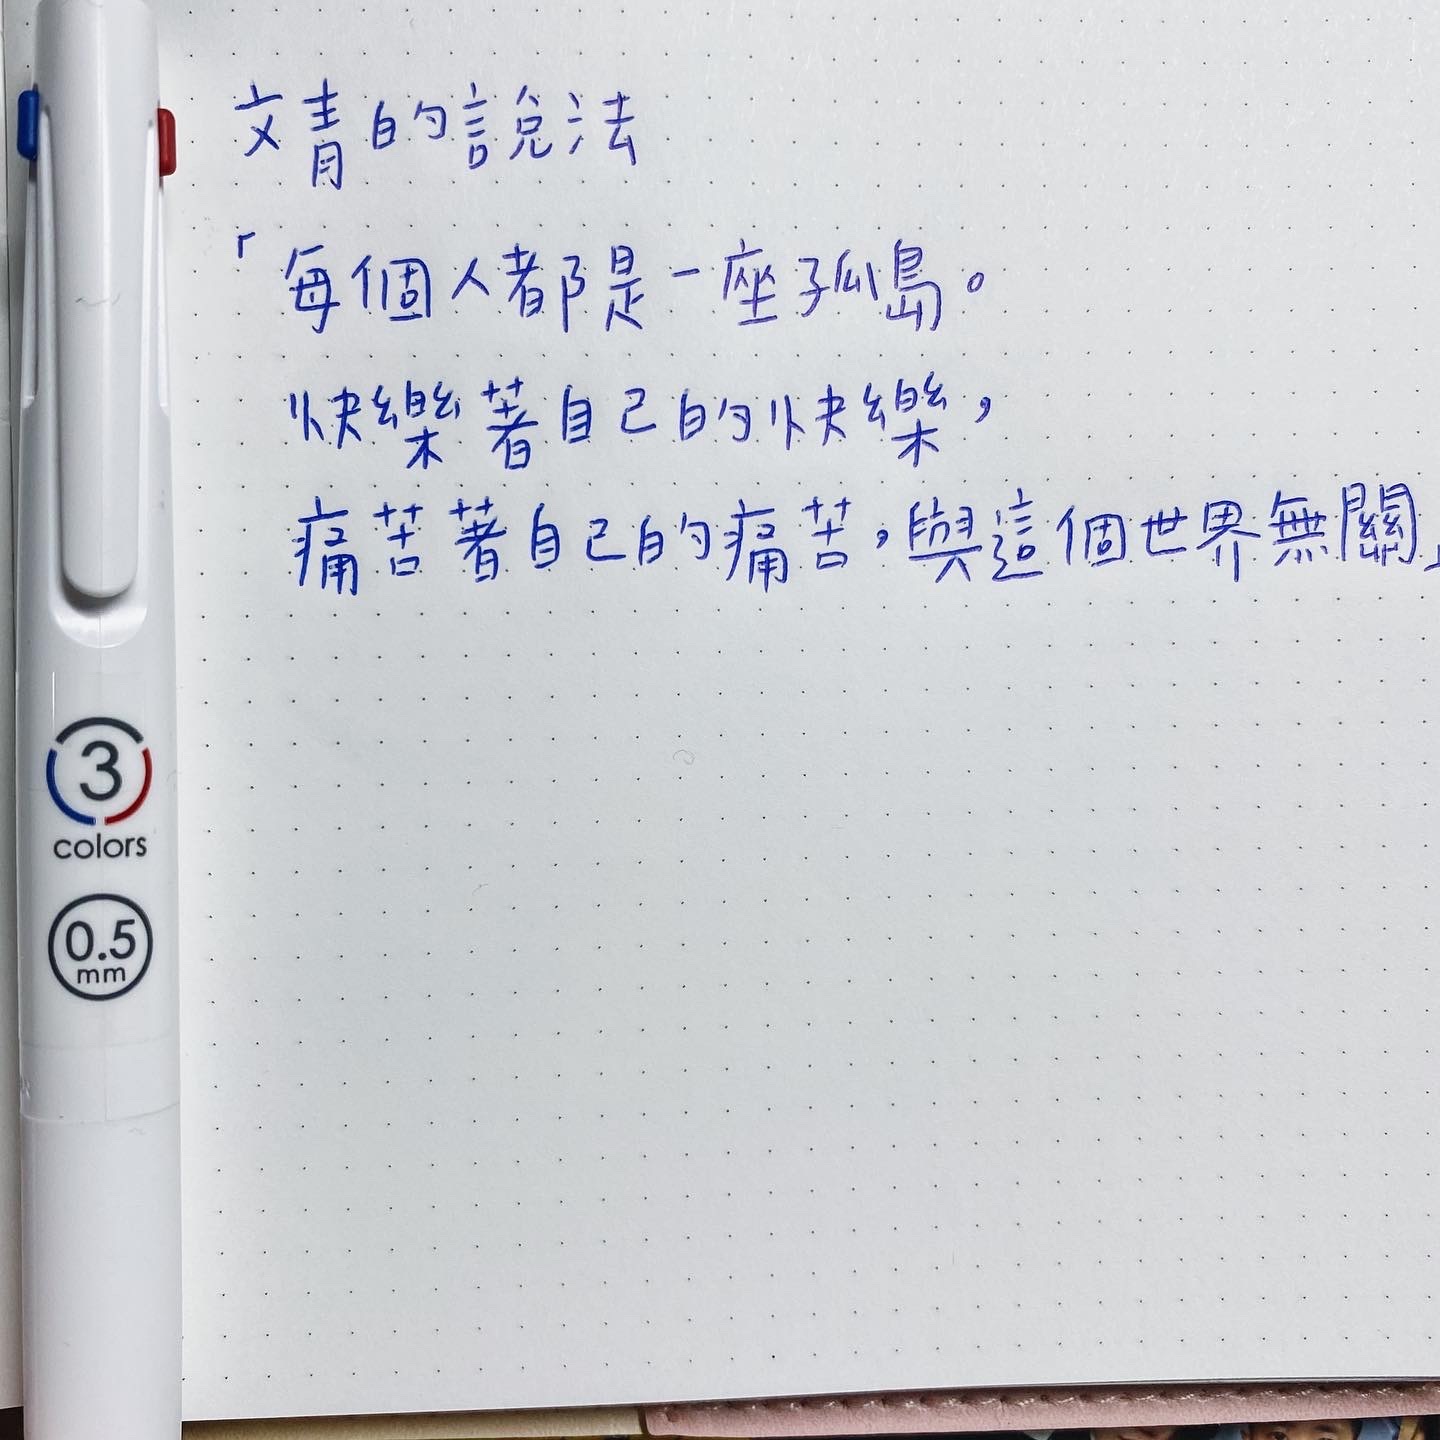 文青的說法
「每個人都是一座孤島。
快樂著自己的快樂，
痛苦著自己的痛苦，與這個世界無關」
3
colors
0.5
mm